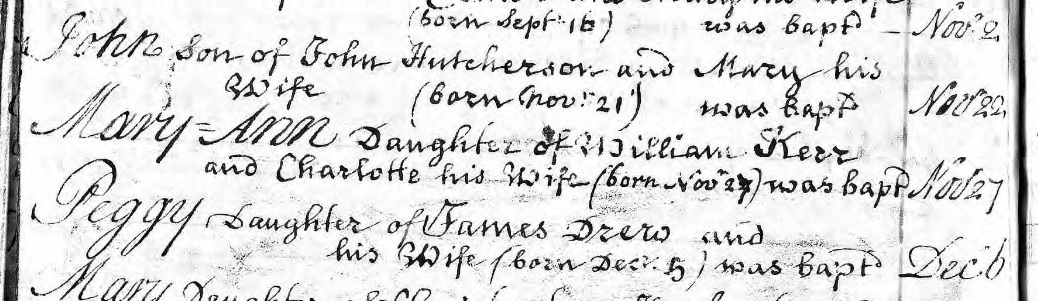 (born Sept: 16) was bapt^d Nov^r 2
John Son of John Hutcherson and Mary his
Wife (born Nov^r: 21) was bapt^d Nov^r 22
Mary=Ann Daughter of William Kerr
and Charlotte his Wife (born Nov^r 27) was bapt^d Nov^r 27
Peggy Daughter of James Drew and
his Wife (born Dec^r: 5) was bapt^d Dec 6
Mary Daughter of